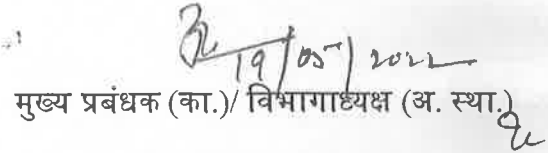 19/05/2022
मुख्य प्रबंधक (का.)/ विभागाध्यक्ष (अ. स्था.)